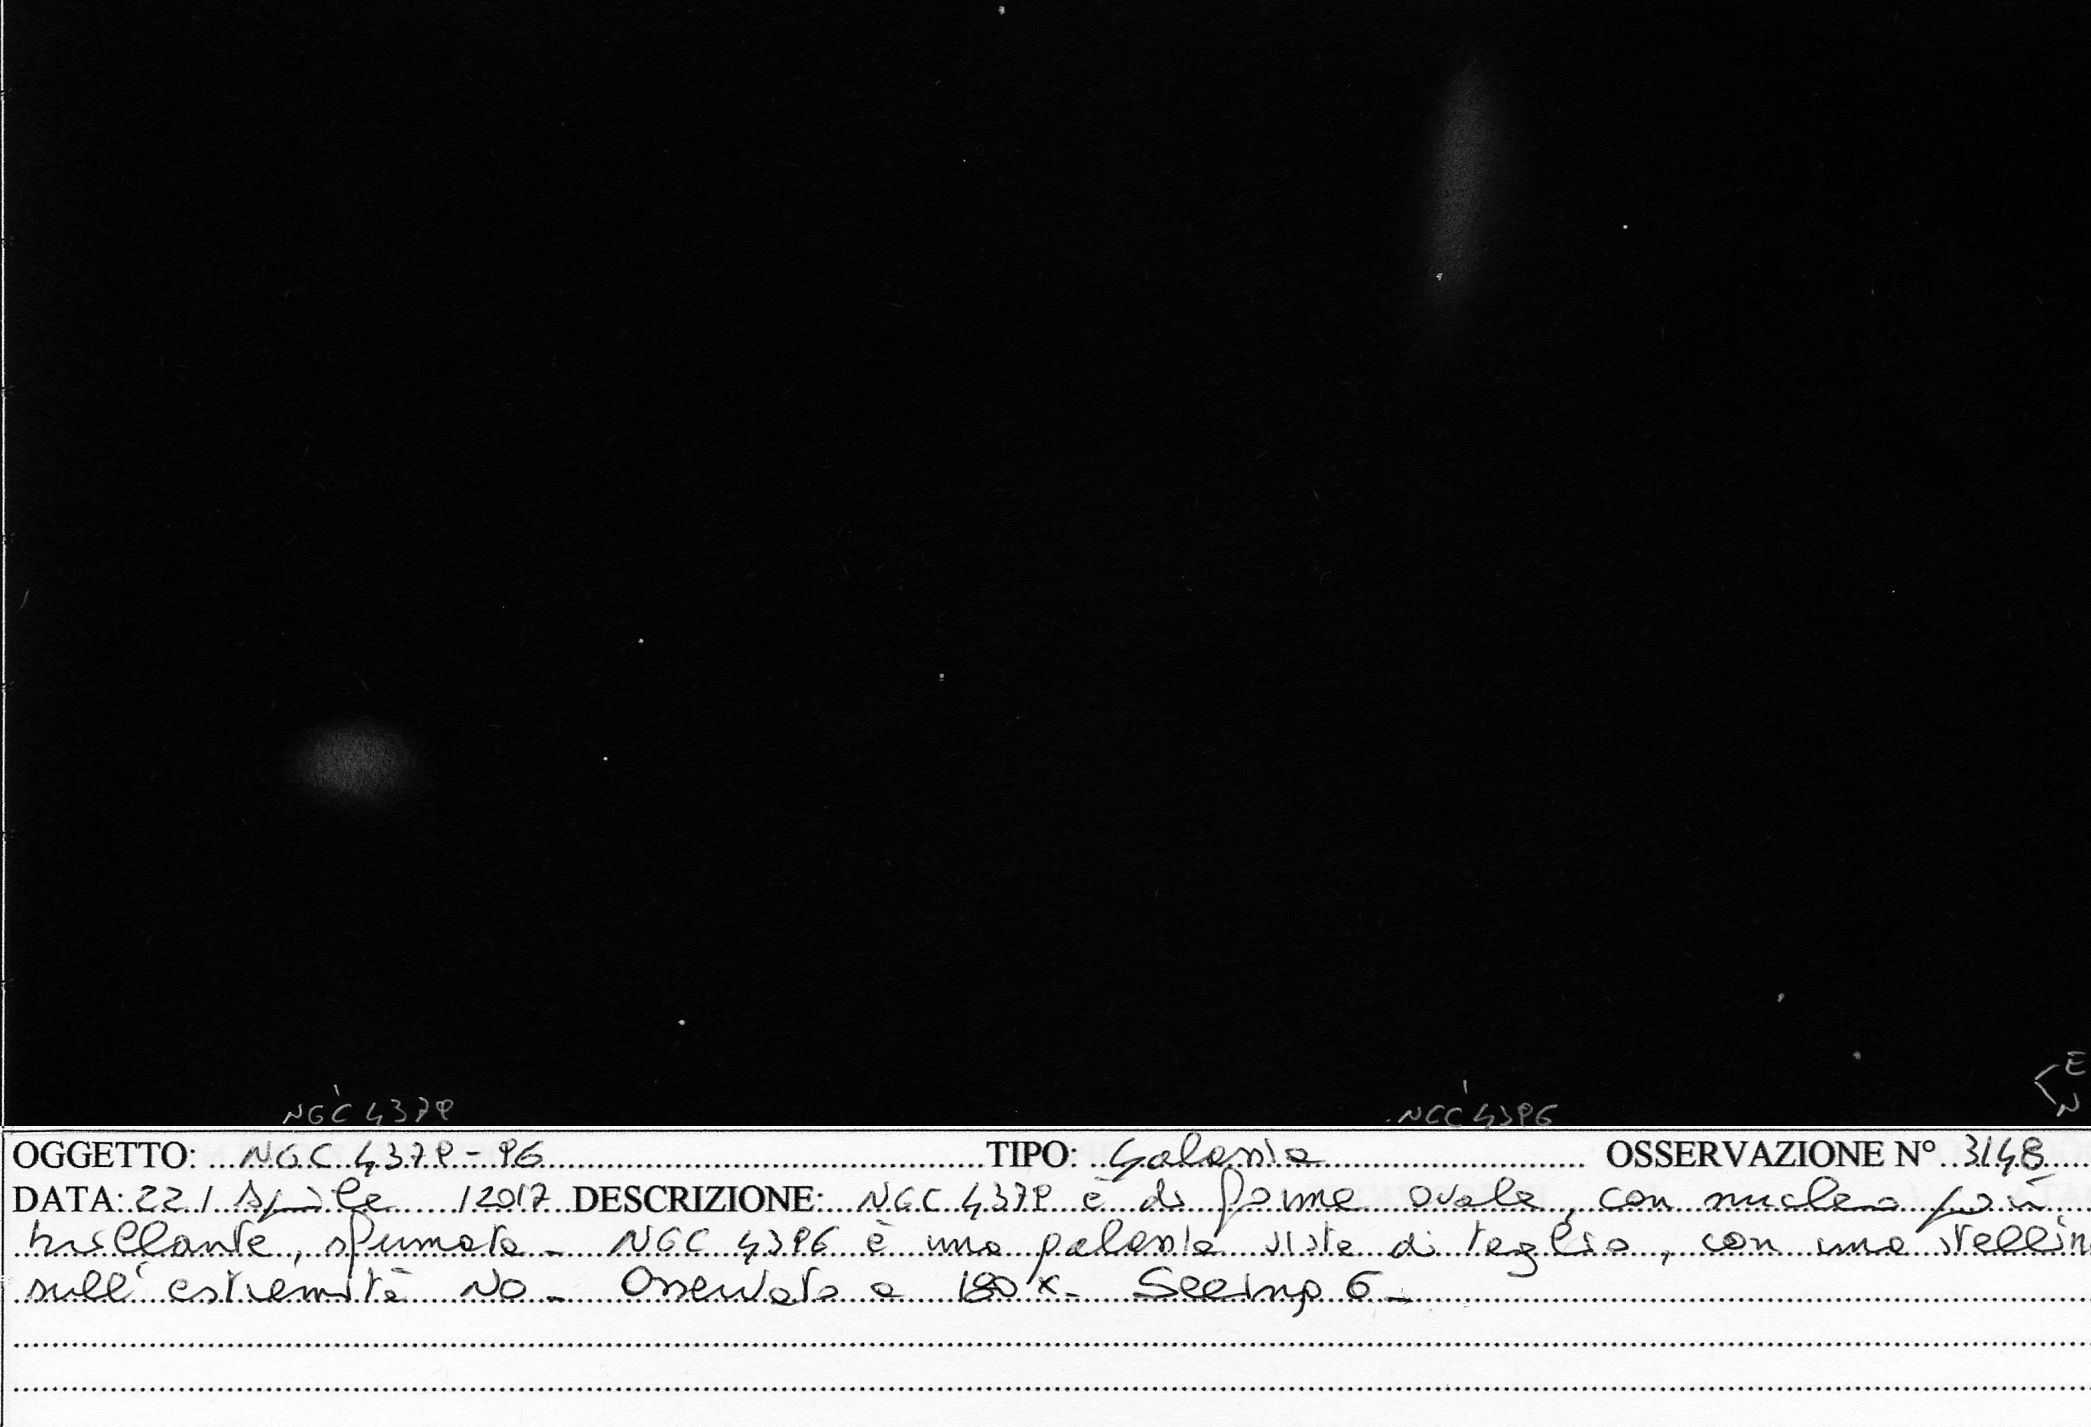 E
N
NGC 4379 NGC 4396
OGGETTO: NGC 4379-96 TIPO: Galassia OSSERVAZIONE N° 3148
DATA: 22 / Aprile / 2017 DESCRIZIONE: NGC 4379 è di forma ovale, con nucleo più
brillante, sfumata. NGC 4396 è una galassia vista di taglio, con una stellin
sull'estremità NO. Osservata a 180x. Seeing 6.